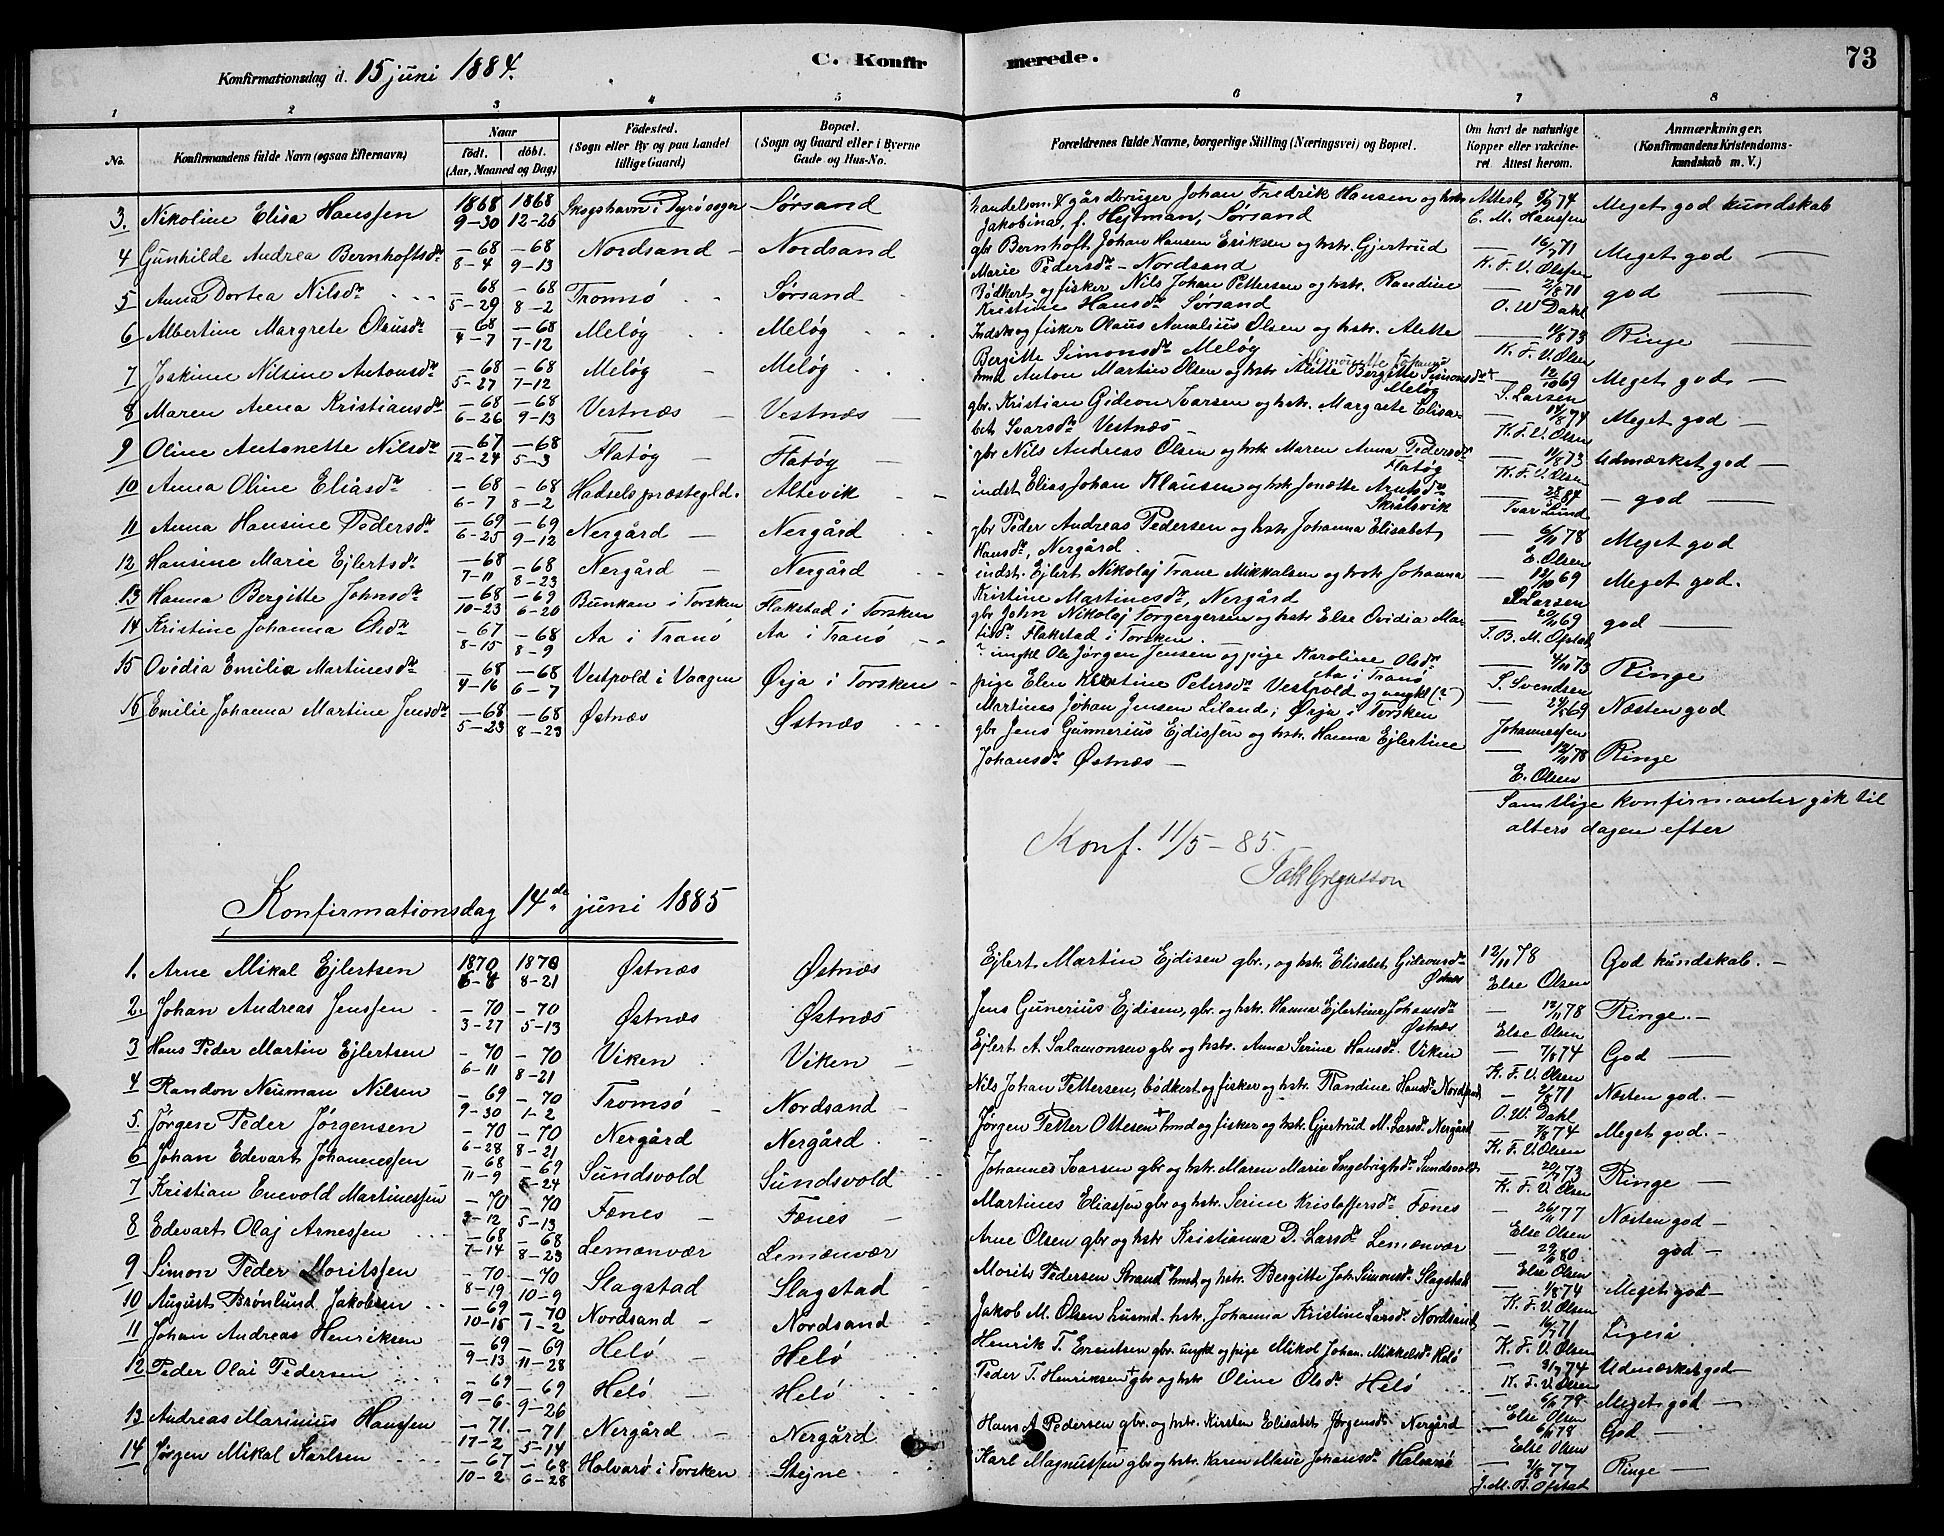 Konfirmationsdag d. 15 juni 1884.
C. Konfirmerede.
73
1 2 3 4 5 6 7 8
No.
Konfirmandens fulde Navn (ogsaa Efternavn)
Naar
födt. döbt.
(Aar, Maaned og Dag)
Födested.
(Sogn eller By og paa Landet
tillige Gaard)
Bopæl.
(Sogn og Gaard eller i Byerne
Gade og Hus-No.
Forældrenes fulde Navne, borgerlige Stilling (Næringsvei) og Bopæl.
Om havt de naturlige
Kopper eller vakcine-
ret. Attest herom.
Anmærkninger.
(Konfirmandens Kristendoms-
kundskab m. V.)
3. Nikoline Elisa Hanssen 1868 9-30 1868 12-26 Skogshavn i Dyrø sogn Sørsand
Handelsm. & gårdbruger Johan Fredrik Hansen og hstr.
Jakobina, f. Hejtman, Sørsand
Attest 74 C. M. Hanssen Meget god kundskab
4 Gunhilde Andrea Bernhoftsdr -68 8-4 -68 9-13 Nordsand - Nordsand
gbr Bernhoft Johan Hansen Eriksen og hstr. Gjertrud
Marie Pedersdr - Nordsand
71 K. F. V. Olssen Meget god
5 Anna Dortea Nilsdr -68 5-29 -68 8-2 Tromsø Sørsand
Bødkert og fisker Nils Johan Pettersen og hstr. Randine
Kristine Hansdr Sørsand
2/8 71 O. W Dahl god
6 Albertine Margrete Olausdr -68 4-7 -68 7-12 Meløy Meløy
Indsk og fisker Olaus Amalius Olsen og hstr. Alette
Bergitte Simonsdr Meløy
11/8 73 K. F. V. Olsen Ringe
7 Joskime Nilsine Antonsdr -68 5-27 -68 7-12 Meløy - Meløy
hmd Anton Martin Olsen og hstr Alette Bergitte Simonsdr
Meløy
12/10 69 S. Larsen Meget god -
8 Maren Anna Kristiansdr -68 6-26 -68 9-13 Vestnæs - Vestnæs -
gbr. Kristian Gideon Ivarsen og hstr. Margrete Elisa-
bet Ivarsdr Vestnæs -
14/8 74 K. F. V. Olsen Meget god -
9 Oline Antonette Nilsdr -67 12-24 -68 5-3 Flatøy - Flatøy -
gbr Nils Andreas Olsen og hstr Maren Anna Pedersdr
Flatøy
11/8 73 K. F. V. Olsen Udmærket god -
10 Anna Oline Eliasdr -68 6-7 -68 8-2 Hadsels præstegld. Altevik
indst Elias Johan Klausen og hstr Jonette Arntsdr
Skrolsvik
84 Ivar Lund - god -
11 Anna Hansine Pedersdr -69 6-25 -69 9-12 Nergård - Nergård
gbr Peder Andreas Pedersen og hstr Johanna Elisabet
Hansdr, Nergård.
6/11 78 E. Olsen Meget god
12 Hansine Marie Ejlertsdr -68 7-11 -68 8-23 Nergård - Nergård
indst. Ejlert Nikolaj Trane Mikkalsen og hstr Johanna
Kristine Martinesdr, Nergård
12/10 69 S. Larsen Meget god.
13 Hanna Bergitte Johnsdr -68 10-23 -69 6-20 Bunkan i Torsken Flakstad i Torsken
gbr John Nikolaj Torgergersen og hstr Else Ovidia Mar-
tisdr Flakstad i Torsken.
69 J. B. M. Ofstad god -
14 Kristine Johanna Olsdr -67 8-15 -68 8-9 Aa i Tranø Aa i Tranø
ungkl Ole Jørgen Jensen og pige Karoline Olsdr
Aa i Tranø
4/10 73 S. Svendsen Ringe
15 Ovidia Emilia Martinesdr -68 4-16 -68 6-7 Vestpold i Vaagen Ørja i Torsken -
pige Elen Kristine Petersdr Vestpold og ungkl (?)
Martines Johan Jensen Liland; Ørja i Torsken
69 Johannessen Næsten god
16 Emilie Johanna Martine Jensdr -68 5-23 -68 8-23 Østnæs Østnæs
gbr Jens Gunnerius Ejdissen og hstr. Hanna Ejlertine
Johansdr Østnæs -
12/11 78 E. Olsen Ringe
Samtlige konfirmanter gik til
alters dagen efter
Konf. 11/5-85.
Konfirmationsdag 14de juni 1885
1. Arne Mikal Ejlertsen 1870 6-8 1870 8-21 Østnæs Østnæs
Ejlert Martin Ejdisen gbr., og hstr. Elisabet Gideonsdr
Østnæs
12/11 78 Else Olsen God kundskab. -
2. Johan Andreas Jenssen -70 3-27 -70 5-13 Østnæs Østnæs
Jens Gunerius Ejdisen, gbr og hstr. Hanna Ejlertine Johansdr
Østnæs
12/11 78 Else Olsen Ringe. -
3 Hans Peder Martin Ejlertsen -70 6-11 -70 8-21 Viken Viken -
Ejlert A. Salamonsen gbr og hstr. Anna Serine Hansdr. Viken
7/8 74 K. F. V. Olsen God -
4 Randon Neuman Nilsen -69 9-30 -70 1-2 Tromsø - Nordsand -
Nils Johan Pettersen, bødkert og fisker og hstr. Randine Hansdr Nordsand
2/8 71 O. W. Dahl Næsten god. -
5. Jørgen Peder Jørgensen -70 6-28 -70 8-21 Nergård Nergård.
Jørgen Petter Ottesen + hmd og fisker og hstr. Gjertrud M. Larsdr. Nergård
7/8 74 K. F. V. Olsen Meget god. -
6 Johan Edevart Johannessen -68 11-9 -69 5-24 Sundsvold Sundsvold
Johannes Ivarsen gbr og hstr. Maren Marie Ingebrigtsdr Sundsvold
73 K. F. V. Olsen Ringe -
7 Kristian Enevold Martinessen -70 3-12 -70 5-13 Fænes - Fænes -
Martines Eliassen gbr og hstr Serine Kristoffersdr Fænes
26/11 77 Else Olsen Næsten god -
8 Edevart Olaj Arnessen -68 7-14 -68 8-23 Lemænvær Lemænvær
Arne Olsen gbr og hstr Kristianna D. Larsdr Lemænvær
80 Else Olsen god -
9 Simon Peder Moritssen -70 8-19 -70 10-9 Slagstad Slagstad
Morits Pedersen Strand hmd, og hstr. Bergitte Joh. Simonsdr. Slagstad
74 K. F. V. Olsen Meget god -
10 August Brønlund Jakobsen -69 10-15 -70 1-2 Nordsand - Nordsand -
Jakob M. Olsen husmd. hstr. Johanna Kristine Larsdr Nordsand
71 K. F. V. Olsen Ligeså
11 Johan Andreas Henriksen -69 9-13 -69 11-28 Helø Helø -
Henrik T. Erentsen gbr ungk og pige Mikol Johan. Mikkelsdr Helø
74 K. F. V. Olsen Udmærket god -
12 Peder Olai Pedersen -69 9-6 -69 9-26 Helø - Helø -
Peder T. Henriksen + gbr og hstr Oline Olsdr Helø
6/11 78 Else Olsen Meget god -
13 Andreas Marinius Hanssen -71. 17-2 -71 5-14 Nergård - Nergård
Hans A. Pedersen gbr. og hstr. Kirsten Elisabet Jørgensdr Nergård
6/11 78 Else Olsen God -
14 Jørgen Mikal Karlsen -67 10-2 -68 6-28 Holvarø i Torsken Stejne -
Karl Magnussen gbr og hstr. Karen Marie Johansdr Halvarø
77 J. M. B. Ofstad Ringe -